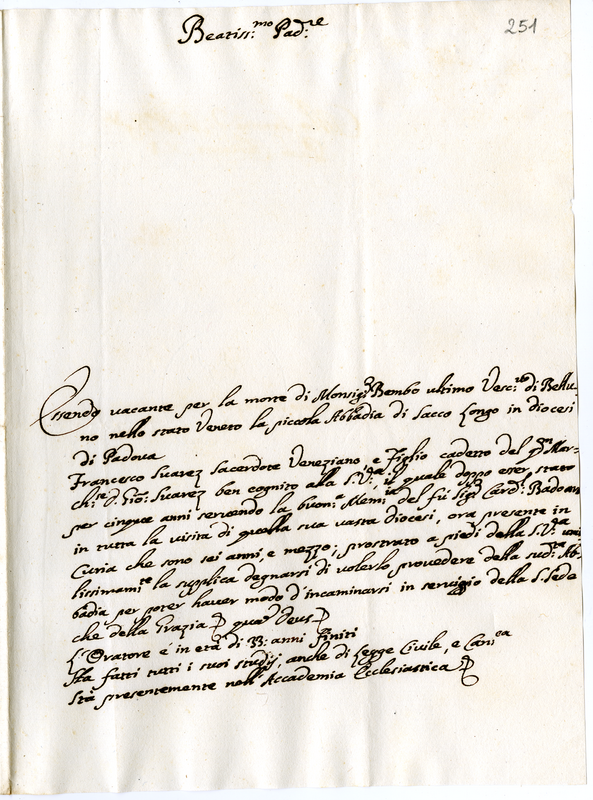 251
Beatiss:mo Pad:re
Essendo vacante per la morte di Monsigr Bembo ultimo Vesc:vo di Bellu-
no nello stato Veneto la piccola Abbadia di Sacco Longo in diocesi
di Padova
Francesco Suarez Sacerdote Veneziano e Figlio cadetto del qm Mar-
ch:se D. Gio: Suarez ben cognito alla S.V:ra, il quale doppo esser stato
per cinque anni servendo la buon:a Mem:ia del fù Sigr Card: Badoaro
in tutta la visita di quella sua vasta diocesi, ora presente in
Curia che sono sei anni, e mezzo; prostrato a piedi della S.V:ra umi
lissimam:te la supplica degnarsi di volerlo provedere della sud:ta Ab-
badia per poter haver modo d'incaminarsi in servigio della S. Sede
che della Grazia quam Deus
L'Oratore é in età di 33: anni finiti
Ha fatti tutti i suoi studij, anche di Legge Civile, e Can:ca
Stà presentemente nell'Accademia Ecclesiastica